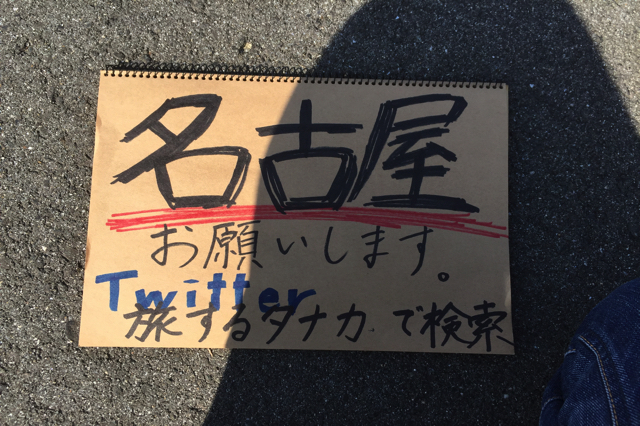 名古屋
お願いします。
Twitter
旅するタナカで検索